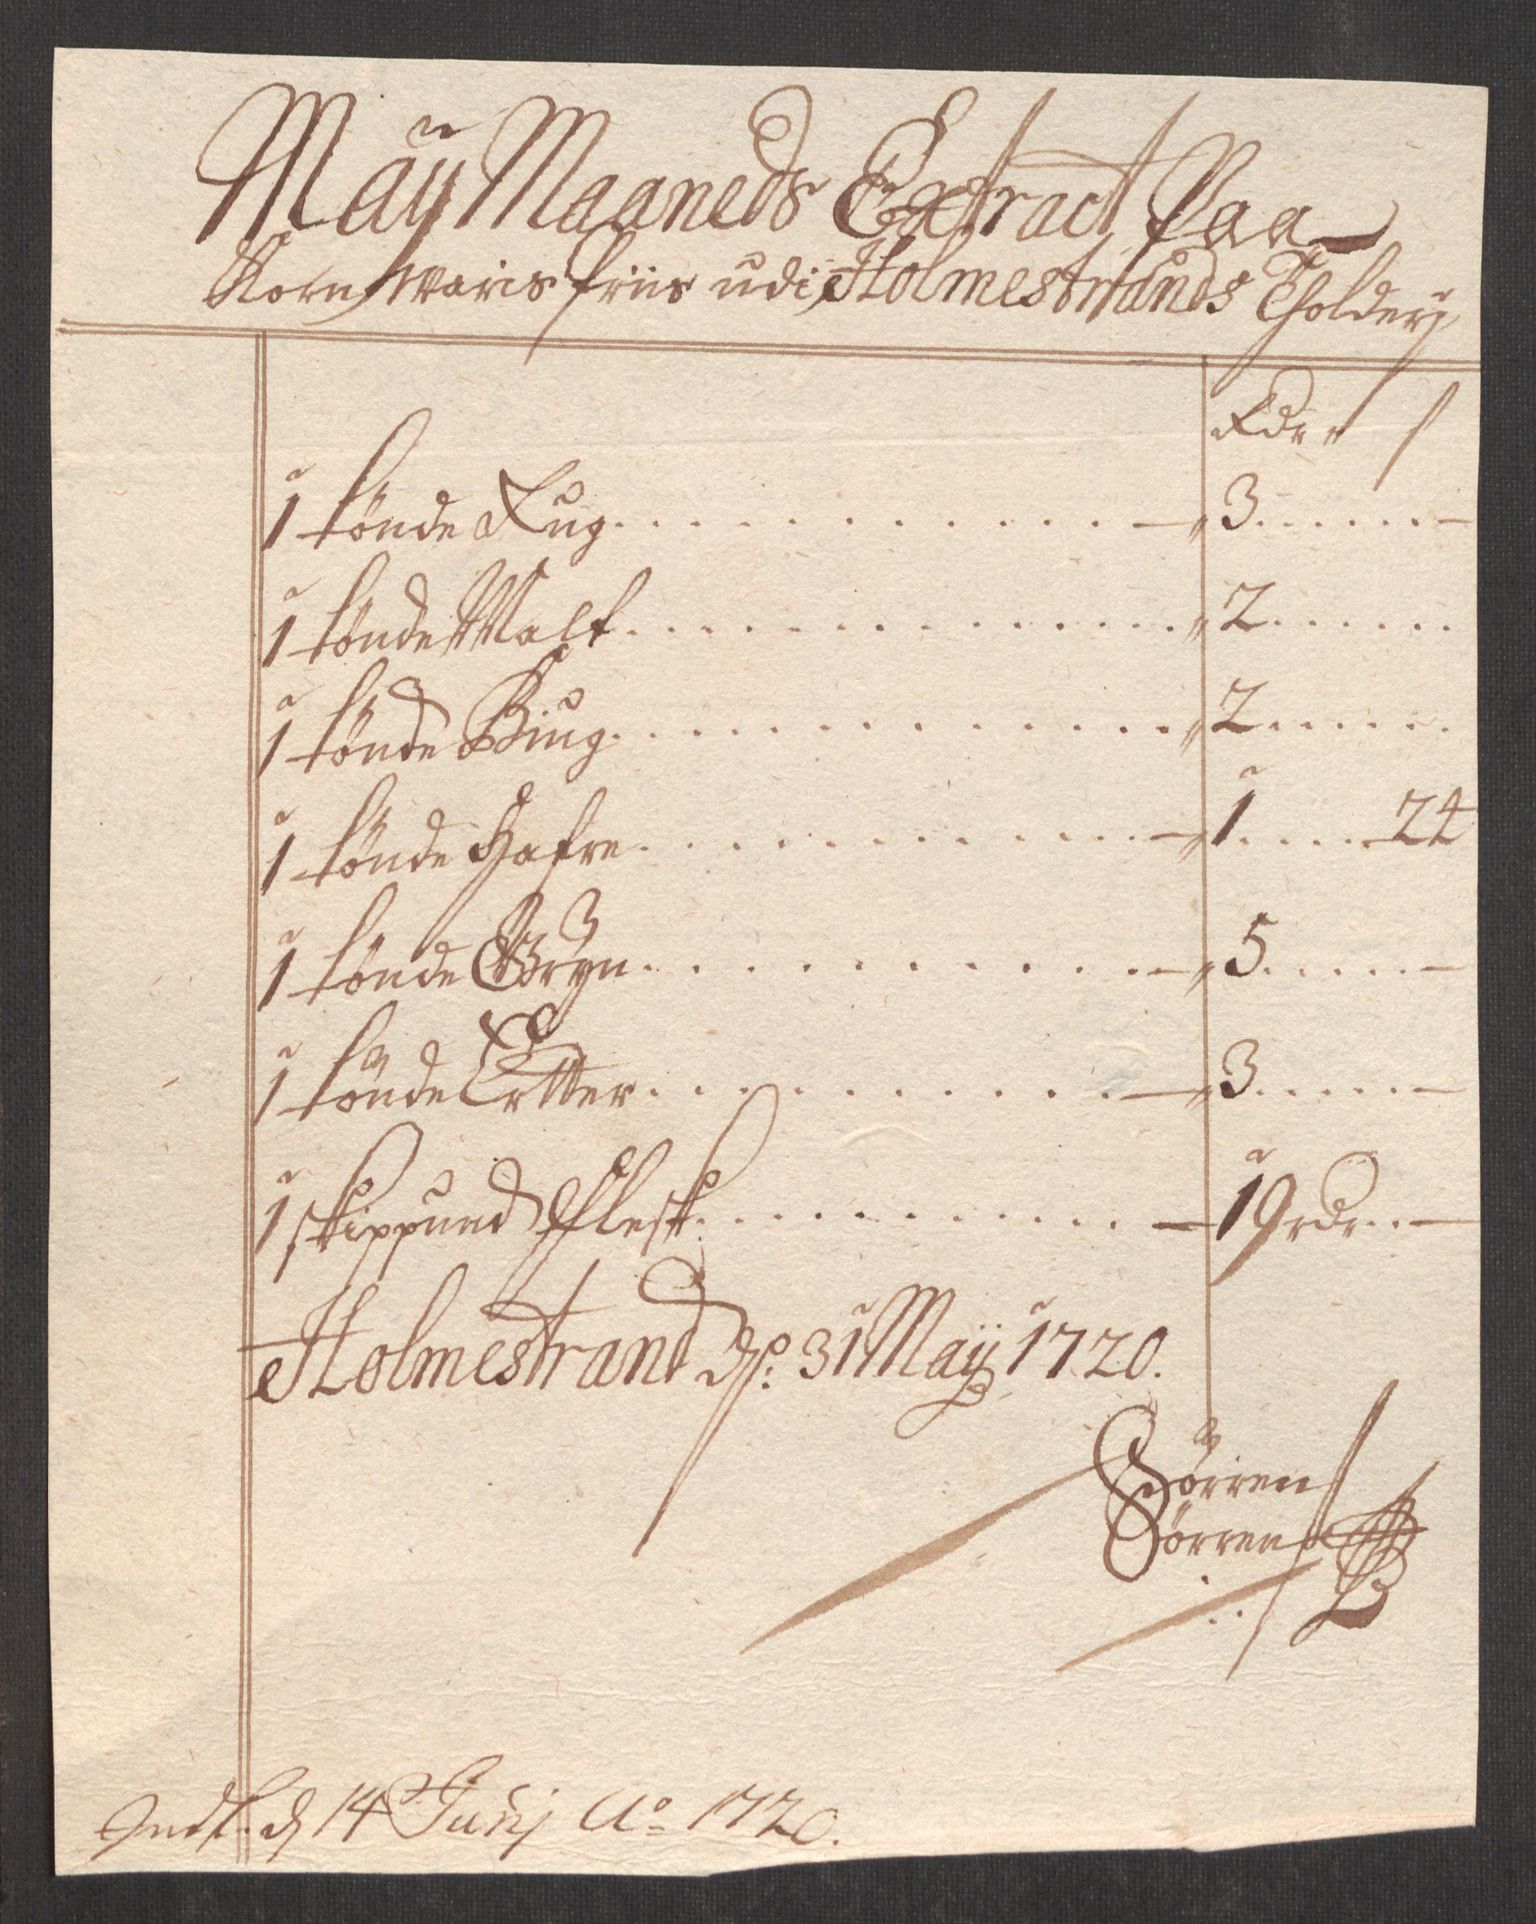 Maÿ Maaneds Extract Paa
Korn waris Priis udi Holmestrands Tholderj
Rdr ß
1 tønde Rug . . . . . . . . . . . 3 . . . . . .
1 tønde Malt . . . . . . . . . . . 2 . . . . . .
1 tønde Biug . . . . . . . . . . . 2 . . . . . .
1 tønde Hafre . . . . . . . . . . . 1 . . . . . 24
1 tønde Gryn . . . . . . . . . . . 5 . . . . . .
1 tønde Ertter . . . . . . . . . . . 3 . . . . . .
1 skippund Flesk . . . . . . . . . . . 19 rdr . .
Holmestrand d: 31 Maÿ 1720.
Sørren
Sørrens
Indl. d 14 Junj Ao 1720.